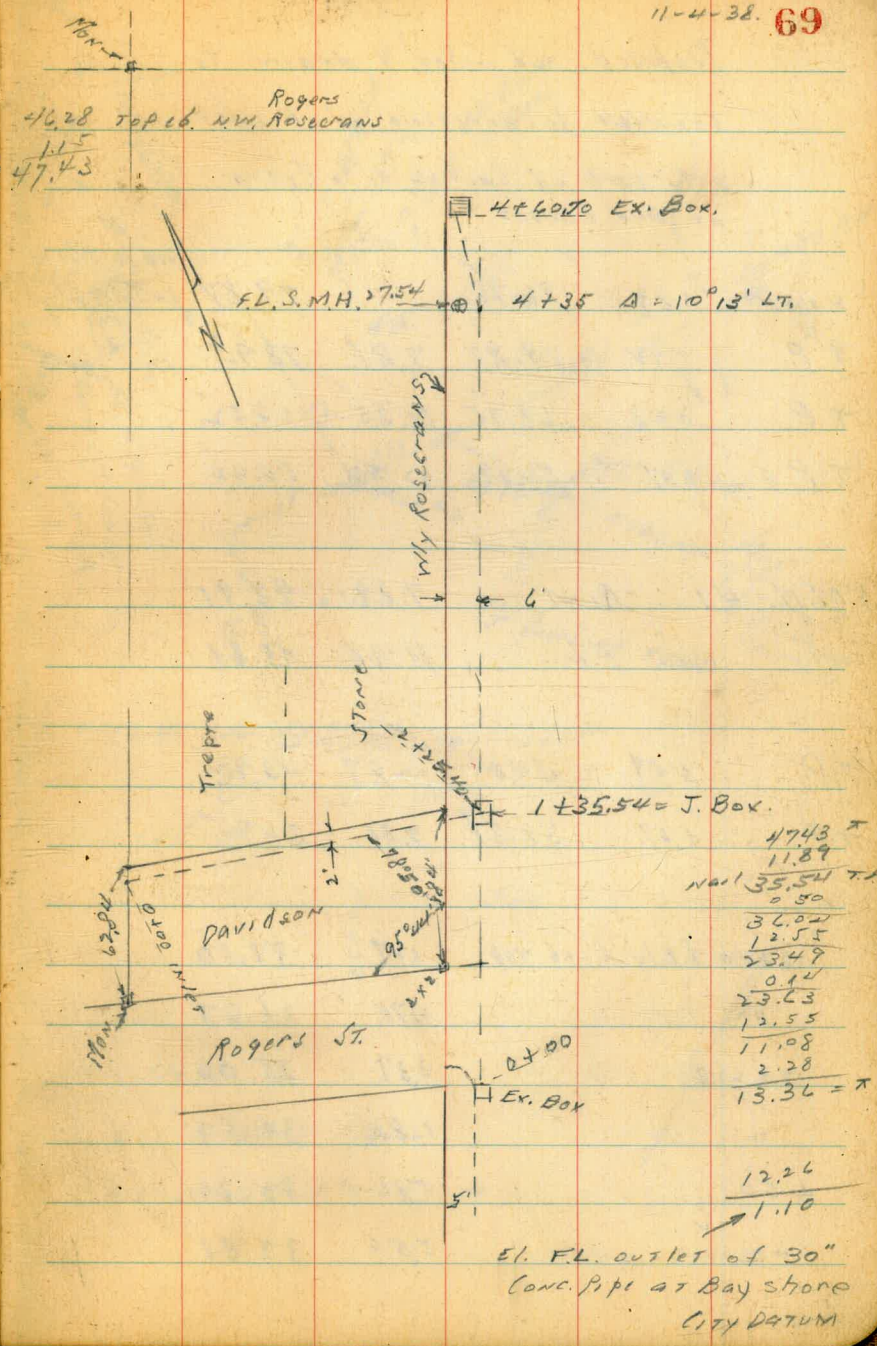 11-4-38. 69
Mon
Rogers
46.28 Top cb. N.W. Rosecrans
1.15
47.43
4+60.70 Ex. Box.
F.L. S. M.H. 27.54
4+35 Δ = 10° 13' LT.
Wly Rosecrans
6'
Trepte
Stone
2"x2"
1+35.54 = J. Box.
2'
62.84
0+00 Inlet
Davidson
95°
2x2
Mon
Rogers St.
0+00
Ex. Box
5'
47.43 π
11.89
Nail 35.54 T.P.
0.50
36.04
12.55
23.49
0.14
23.63
12.55
11.08
2.28
13.36 = π
12.26
1.10
El. F.L. outlet of 30"
Conc. Pipe at Bay shore
City Datum